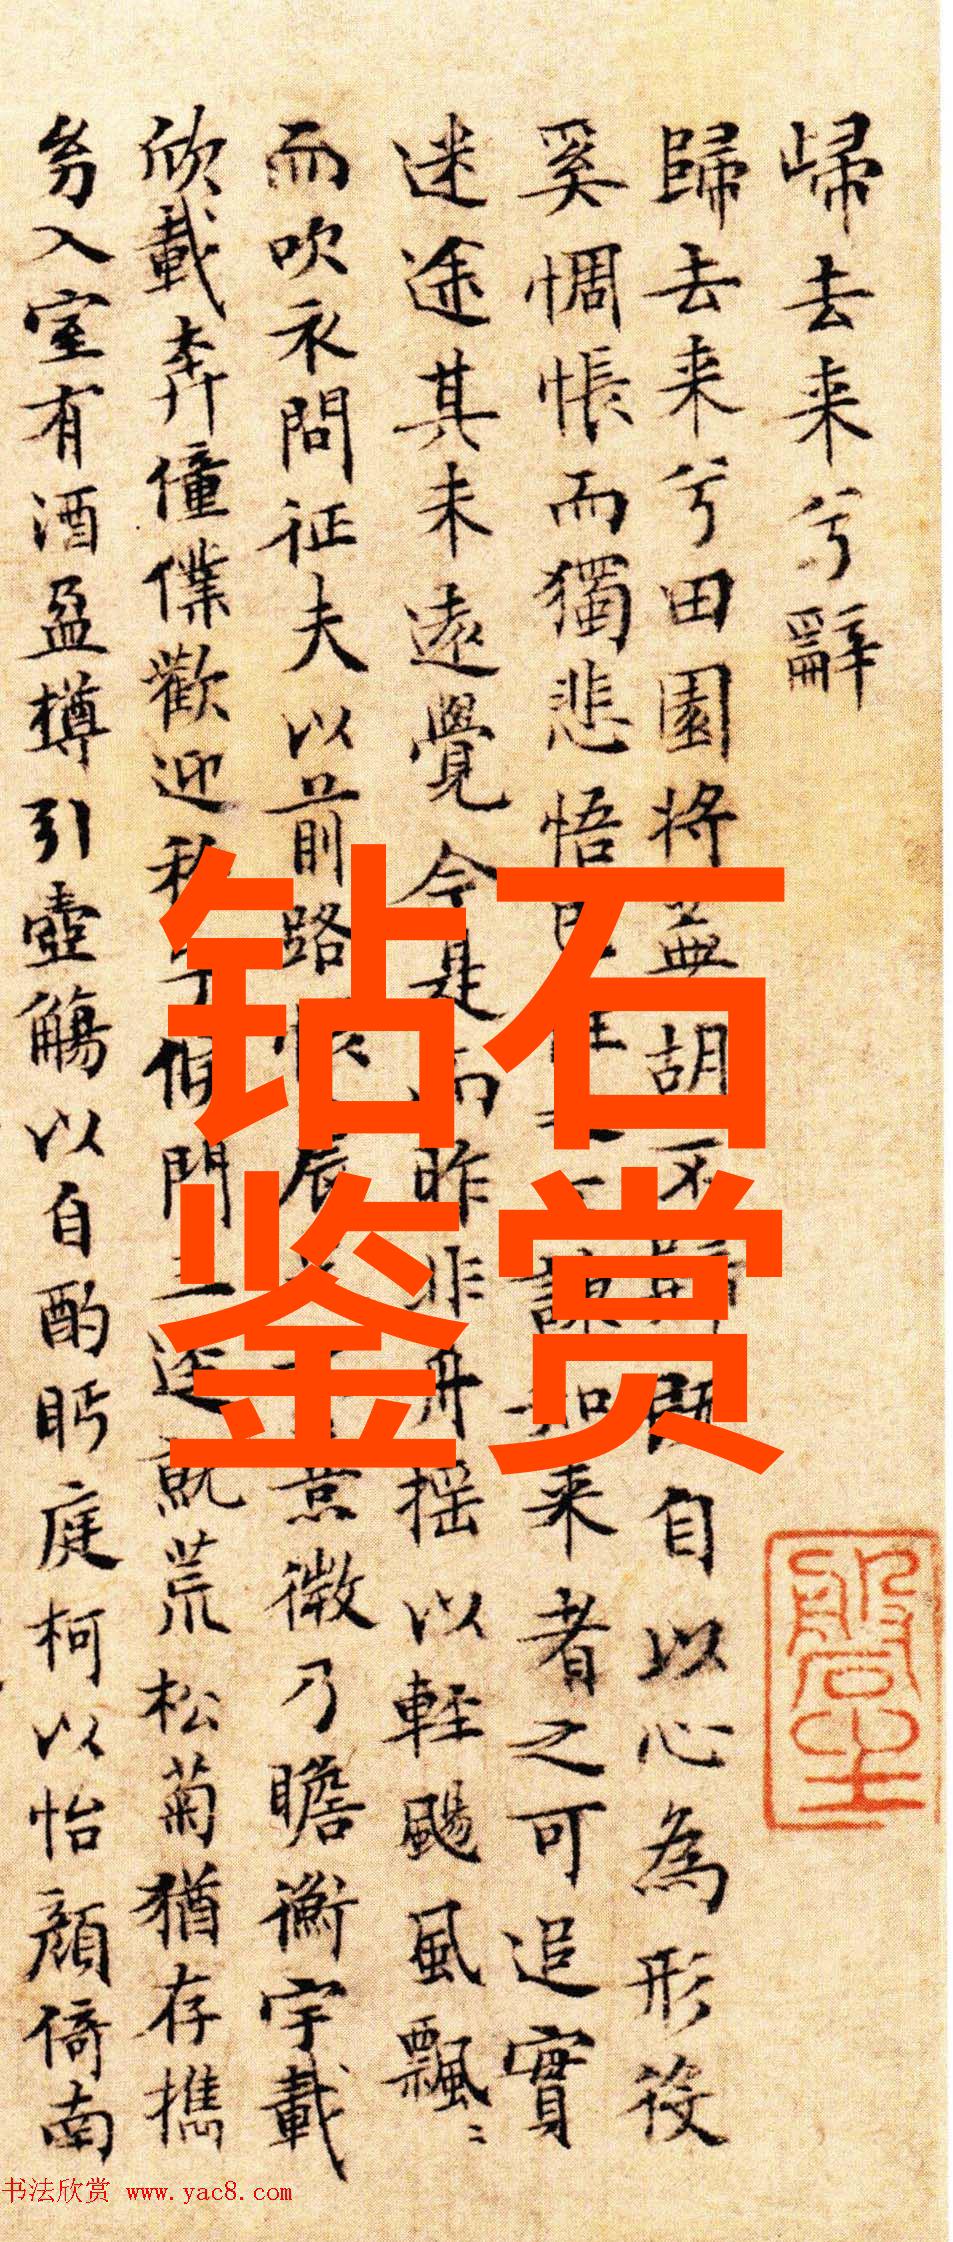 歸去来兮辭
歸去来兮田園将蕪胡不歸既自以心為形役
奚惆悵而獨悲悟諫知来者之可追實
迷途其未遠覺今是而昨非舟揺以輕颺風飄〻
而吹衣問征夫以前路恨晨微乃瞻衡宇載
欣載奔僮僕歡迎稚子候門三逕就荒松菊猶存携
㓜入室有酒盈樽引壺觴以自酌眄庭柯以怡顔倚南
钻石
鉴赏
书法欣赏 www.yac8.com